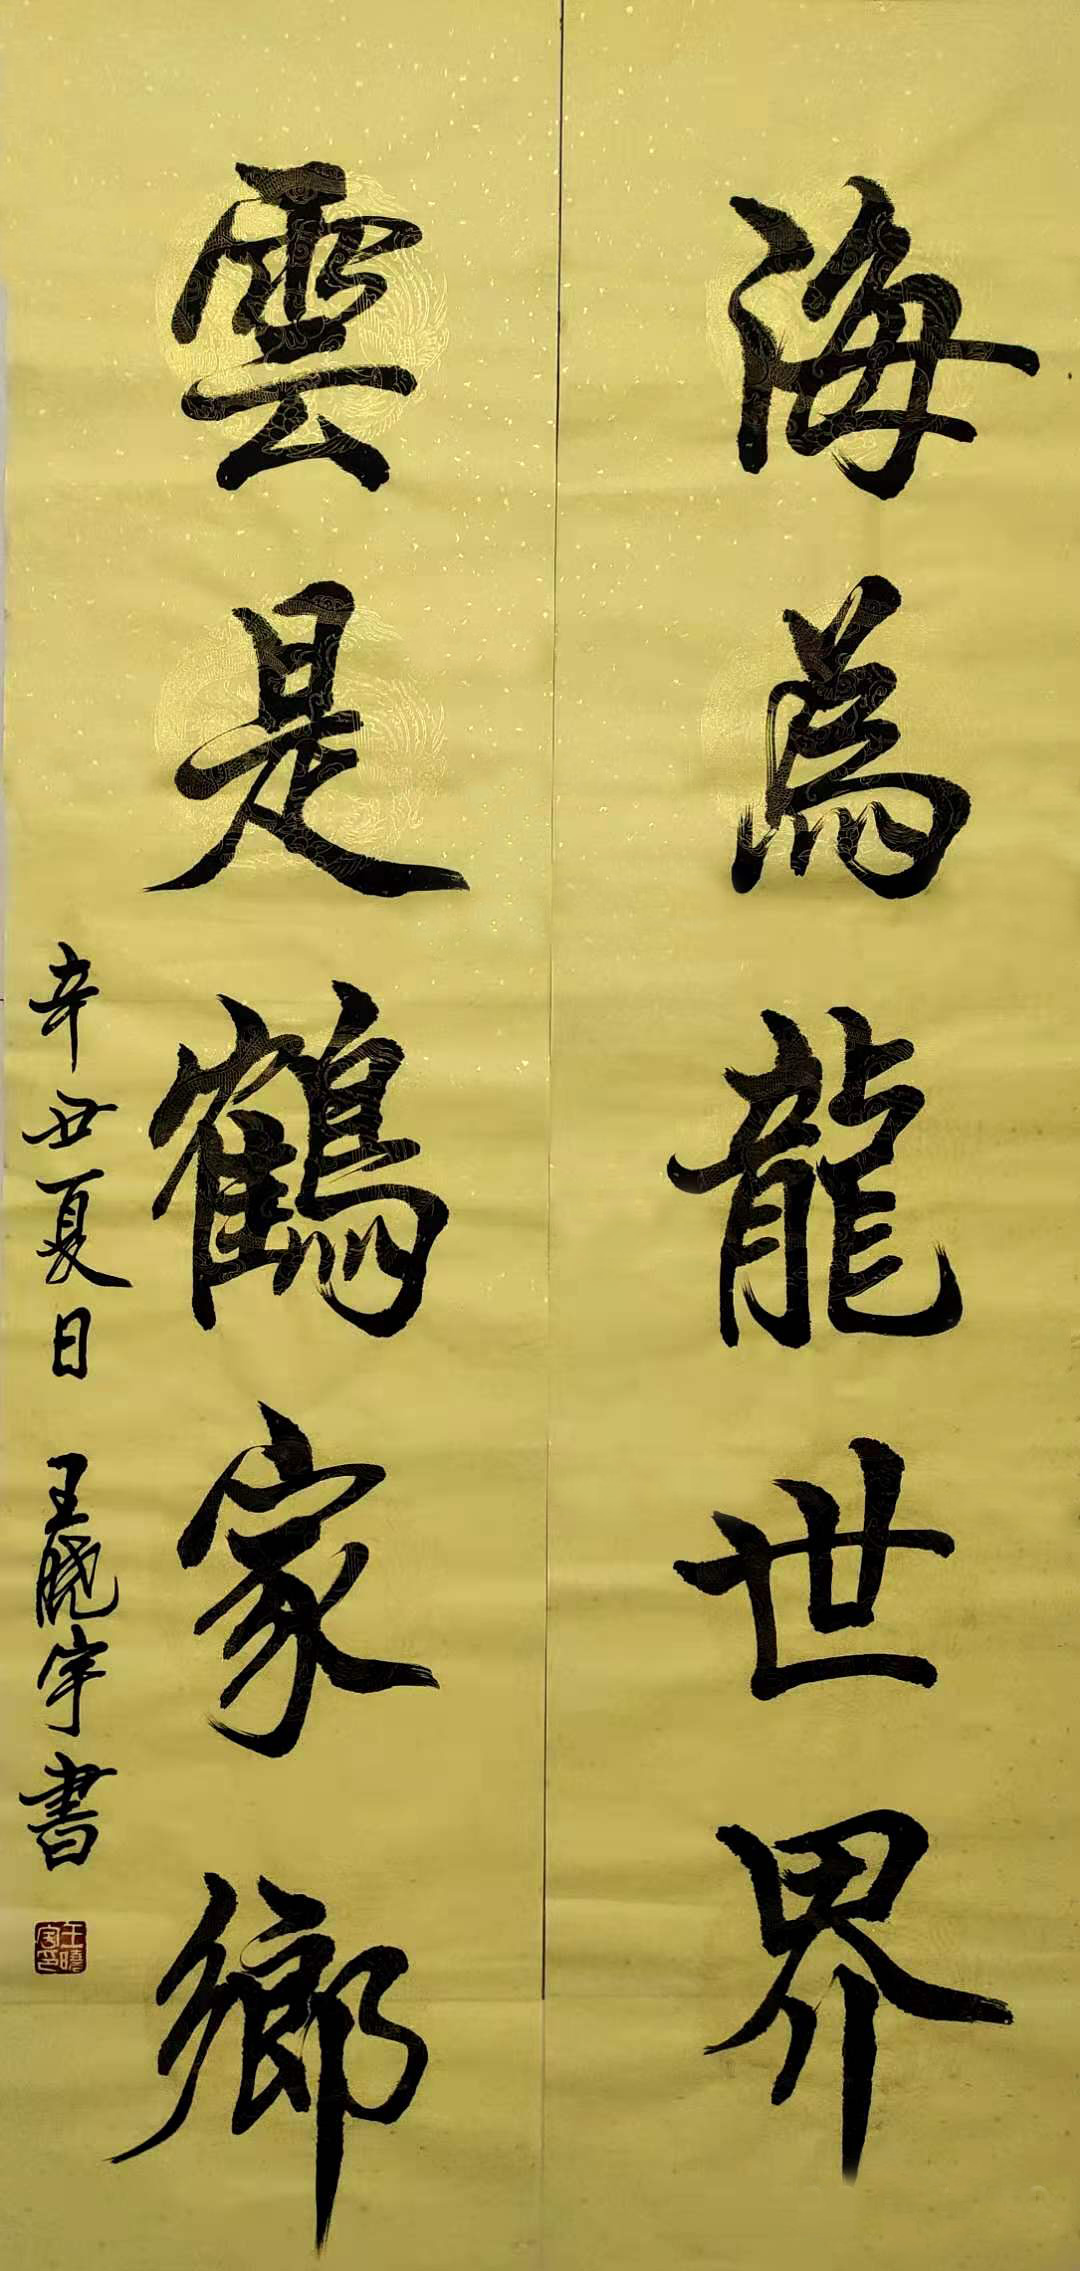 海為龍世界
雲是鶴家鄉
辛丑夏日 王曉宇書
王曉宇印